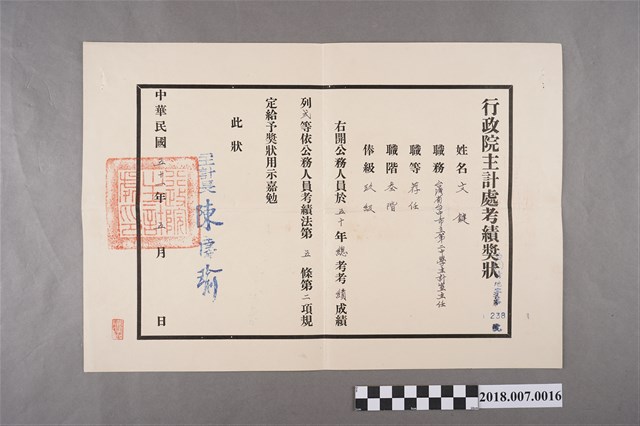 行政院主計處考績獎狀
238
號
姓名 文 鍵
職務 台灣省台中市立第二中學主計室主任
職等 荐任
職階 叁階
俸級 玖級
右開公務人員於五十年總考考績成績
列弍等依公務人員考績法第五條第二項規
定給予獎狀用示嘉勉
此狀
主計長 陳慶瑜
中華民國五十一年五月 日
2018.007.0016